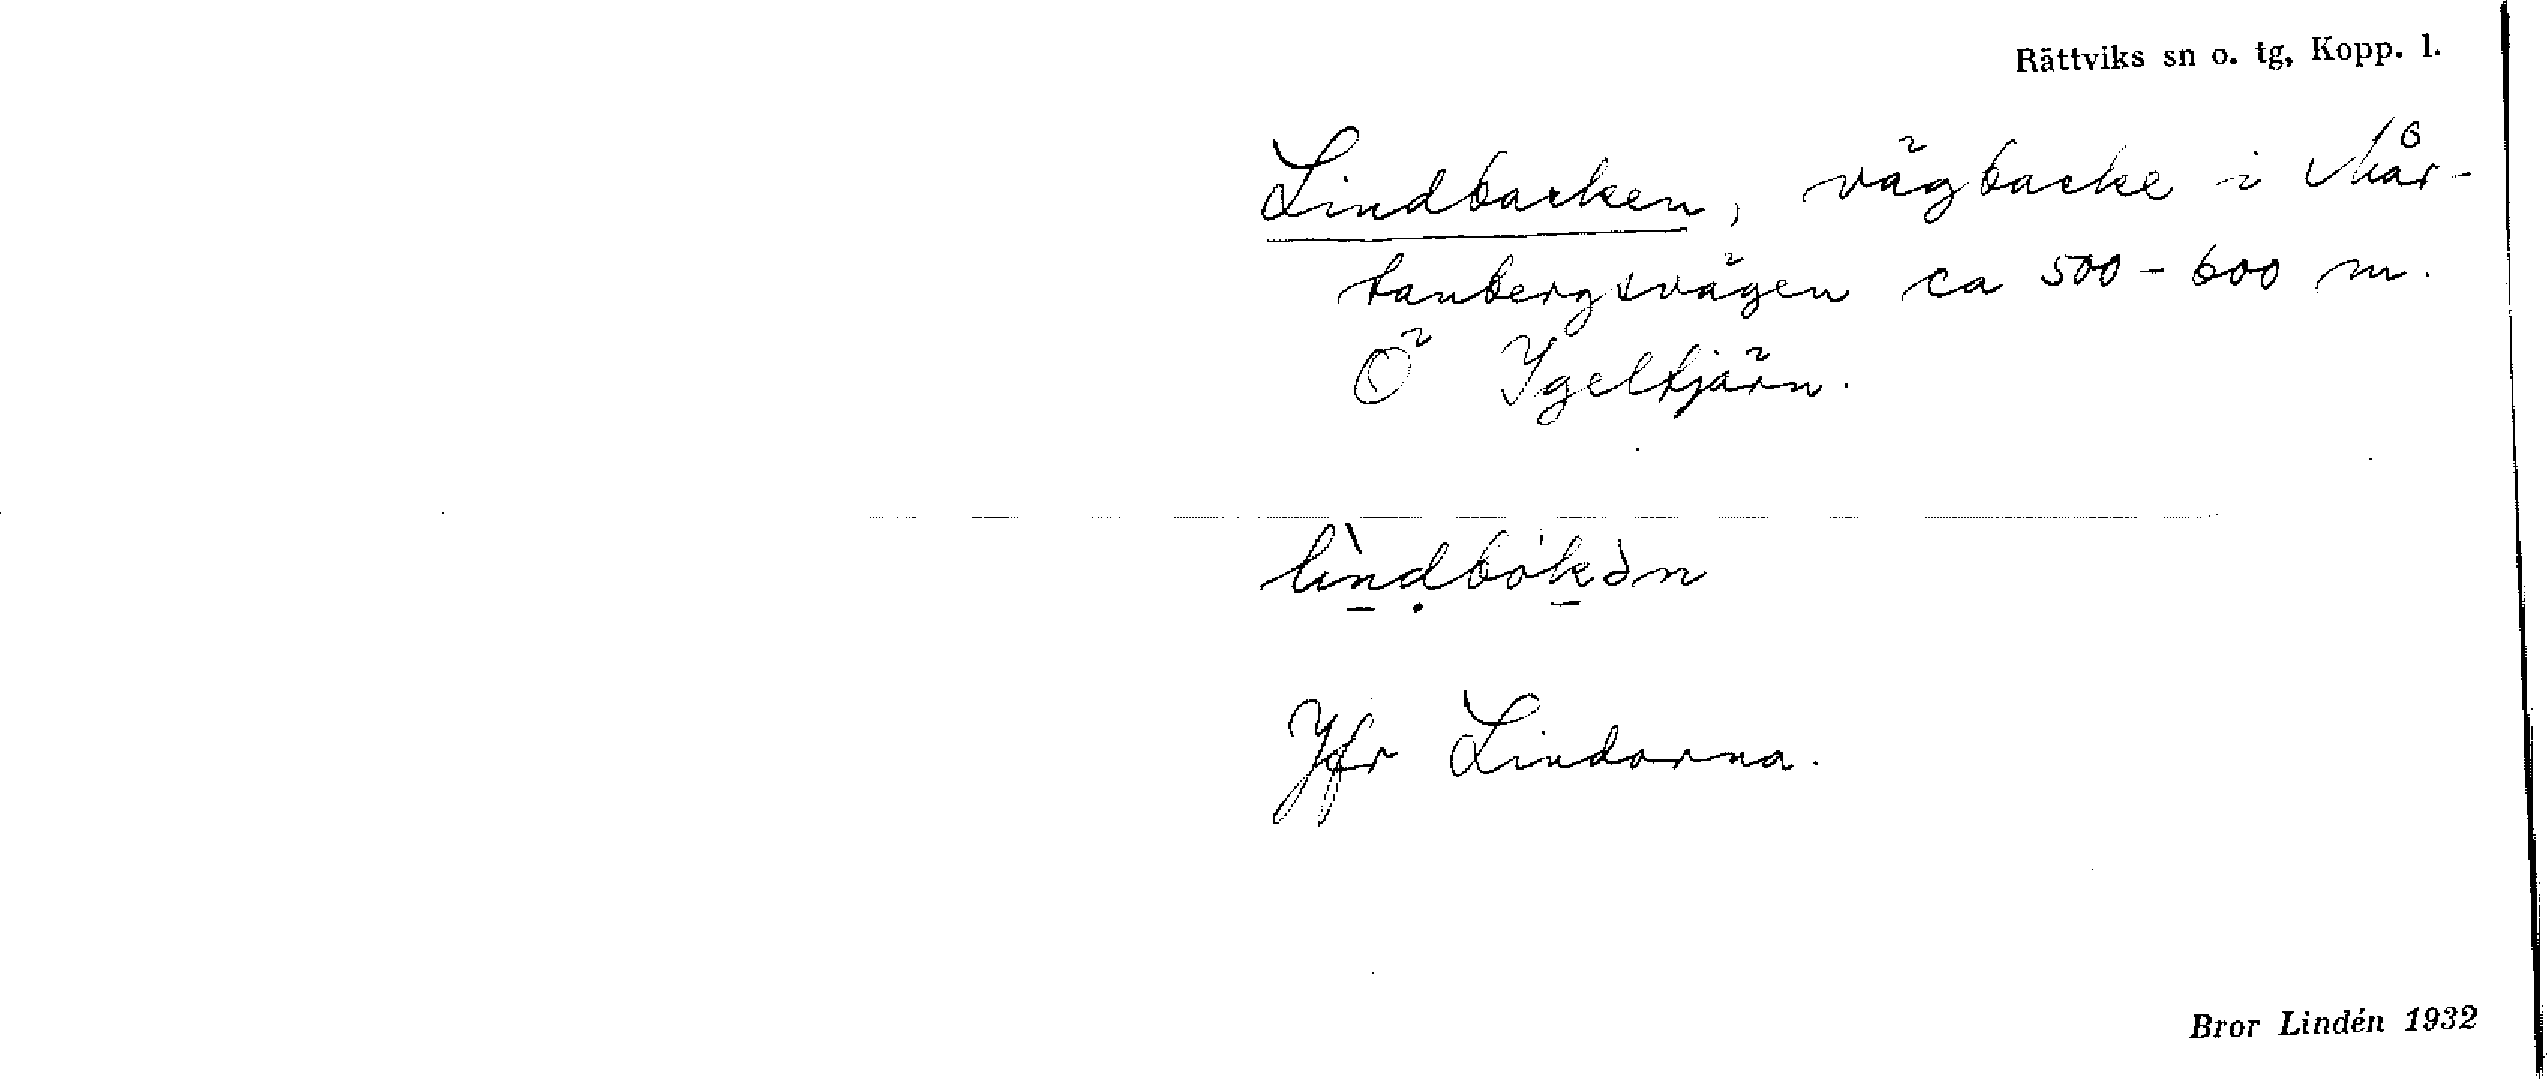 Rättviks sn o. tg, Kopp. l.
Lindbacken, vägbacke i Mår-
tanbergsvägen ca 500-600 m.
Ö Igeltjärn.
lìn̲ḍbók̲ǝ̀n
Jfr Lindorna.
Bror Lindén 1932